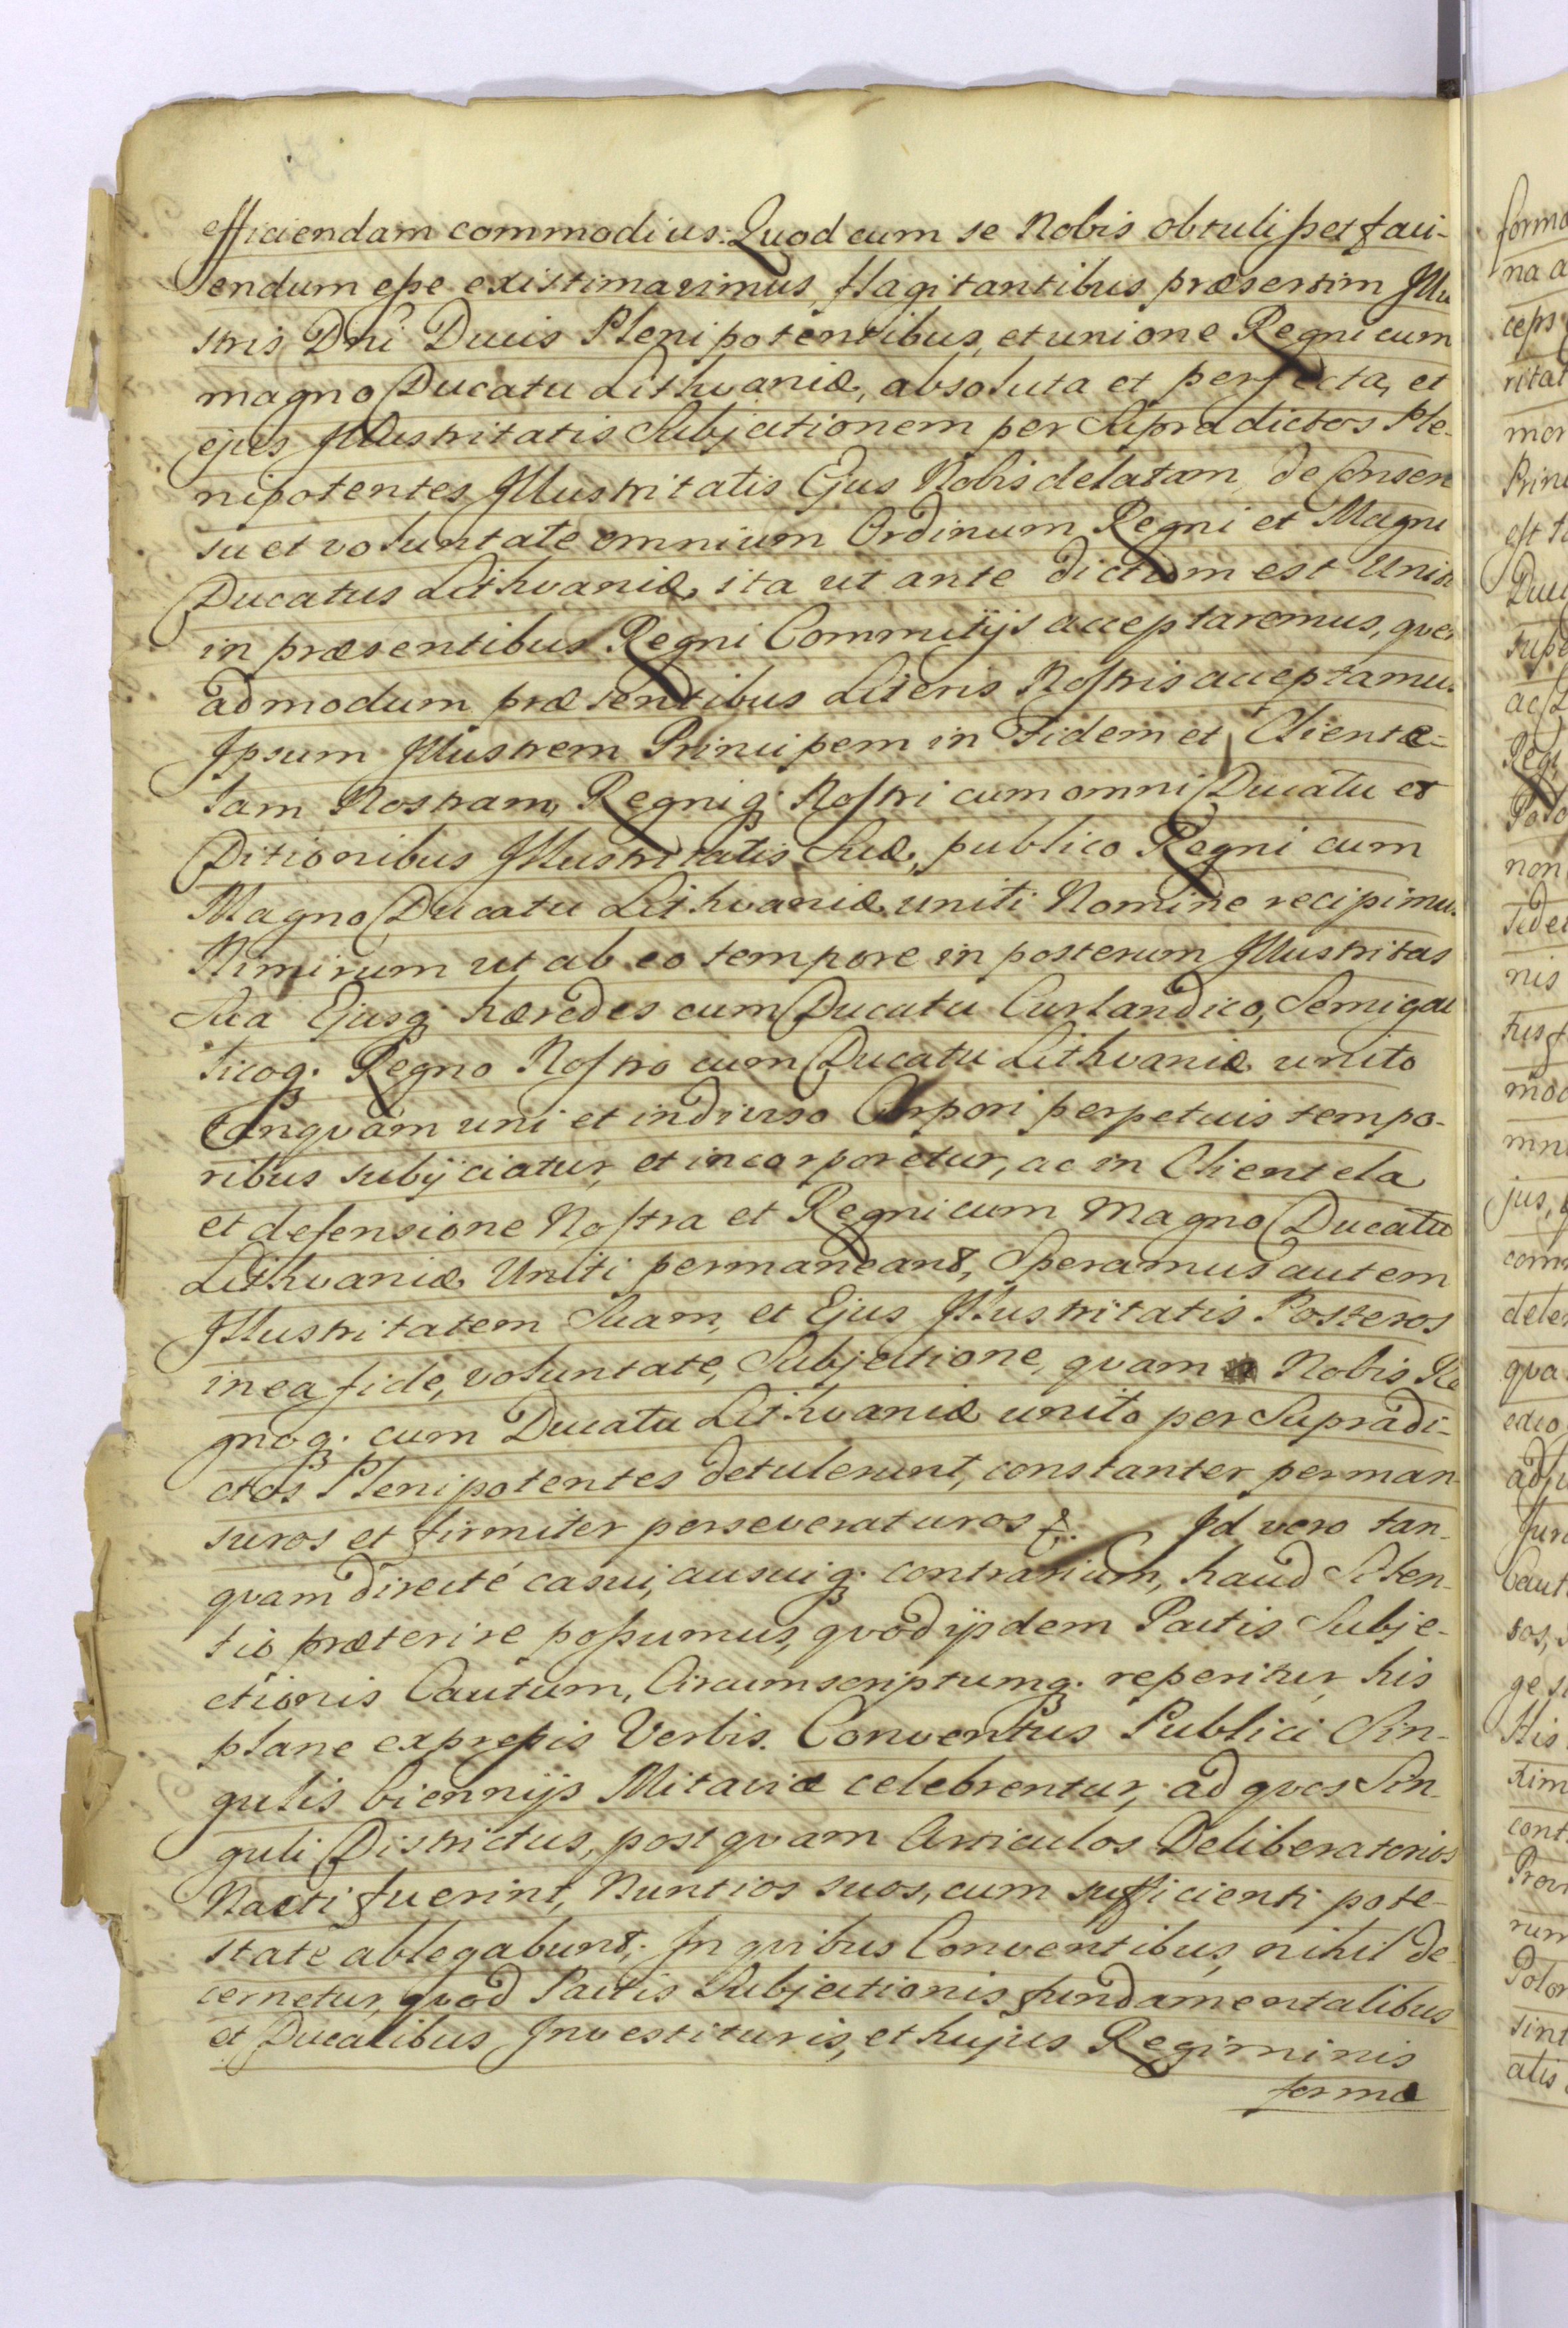 efficiendam commodius. Quod cum se Nobis obtulisset faci-
endum esse existimavimus, flagitantibus præsertim Illu
stris Dni Ducis Plenipotentibus, et unione Regni cum
magno Ducatu Lithvaniæ, absoluta et perfecta, et
ejus Illustritatis Subjectionem per Supradictos Ple-
nipotentes Illustritatis Ejus Nobis delatam, de Consen
su et voluntate omnium Ordinum Regni et Magni
Ducatus Lithvaniæ, ita ut ante dictum est Unit
in præsentibus Regni Commitijs acceptaremus, que
admodum præsentibus Literis Nostris acceptamus
Ipsum Illustrem Principem in Fidem et Cliente-
lam Nostram, Regniq; Nostri cum omni Ducatu et
Ditionibus Illustritatis Suæ, publico Regni cum
Magno Ducatu Lithvaniæ uniti Nomine recipimus
Nimirum ut ab eo tempore in posterum Illustritas
Sua Ejusq; hæredes cum Ducatu Curlandico, Semigal
licoq; Regno Nostro cum Ducatu Lithvaniæ unito
tanqvam uni et indiviso Corpori perpetuis tempo-
ribus subijciatur, et incorporetur, ac in Clientela
et defensione Nostra et Regni cum Magno Ducatu
Lithvaniæ Uniti permaneant, Speramus autem
Illustritatem Suam, et Ejus Illustritatis Posteros
in ea fide, voluntate, Subjectione, qvam Nobis Re
gnoq; cum Ducatu Lithvaniæ unito per Supradi-
ctos Plenipotentes detulerunt, constanter perman
suros et firmiter perseveraturos &. Id vero tan-
qvam directé casui, ausuiq; contrarium, haud Silen-
tio præterire possumus, qvod ijsdem Pactis Subje-
ctionis Cautum, Circumscriptumq; reperitur, his
plane expressis Verbis. Conventus Publici Sin-
gulis biennijs Mitaviæ celebrentur, ad qvos Sin-
guli Districtus, postqvam Articulos Deliberatorios
Nacti fuerint, Nuntios suos, cum sufficienti pote-
state ablegabunt; In qvibus Conventibus, nihil de
cernetur, qvod Pactis Subjectionis fundamentalibus
et Ducalibus Investituris, et hujus Regiminis
formæ
forma
na a
ceps
ritat
mor
Prin
est
Duc
supe
ac
Reg
Polo
non
fide
nis
tus
mod
mni
jus,
com
dele
qva
edio
adju
Jur
Caut
sos,
ge
stis
tim
cont
Prov
rum
Polon
sint
atis